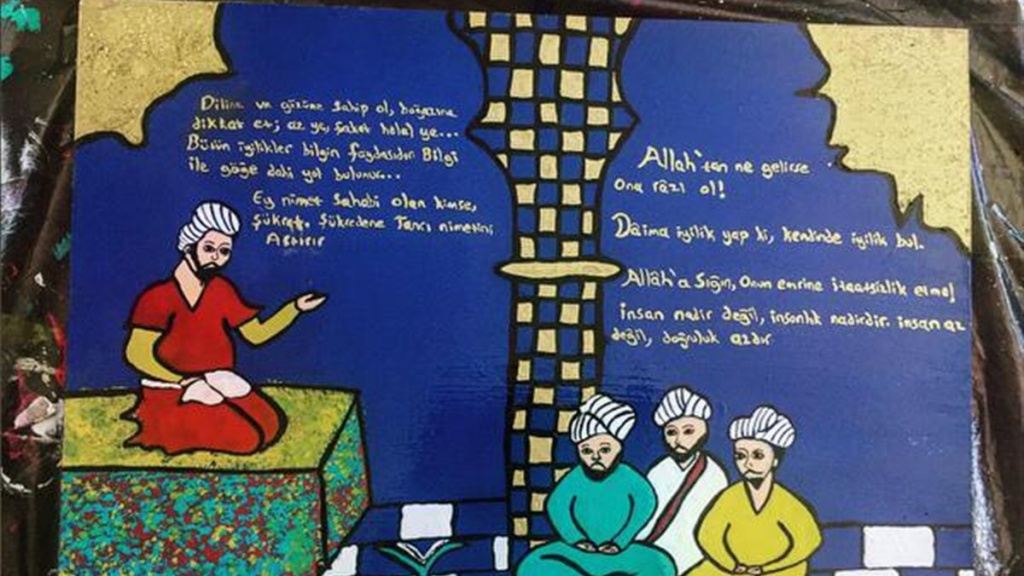 Diline ve gözüne sahip ol, boğazına
dikkat et; az ye, fakat helal ye...
Bütün iyilikler bilgin faydasıdır. Bilgi
ile göğe dahi yol bulunur..
Ey nimet sahabi olan kimse,
şükret. Şükredene Tanrı nimetini
Artırır
Allah'tan ne gelirse
Ona râzı ol!
Daima iyilik yap ki, kendinde iyilik bul.
Allâh'a Sığın, Onun emrine itaatsizlik etme!
İnsan nadir değil, insanlık nadirdir. insan az
değil, doğruluk azdır